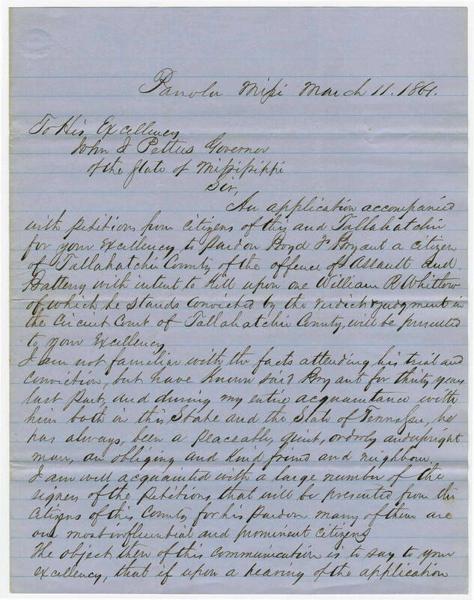 Panola Missi March 11. 1861.
To His Excellency
John J Pettus Governor
of the State of Mississippi
Sir,
An application accompanied
with petitions from citizens of this and Tallahatchie
for your Excellency to pardon Boyd F Bryant a citizen
of Tallahatchie County of the offence of Assault and
Battery with intent to kill upon one William R Whitlow
of which he stands convicted by the verdict & judgment in
the Circuit Court of Tallahatchie County, will be presented
to your Excellency
I am not familiar with the facts attending his trial and
conviction, but have known said Bryant for thirty years
last past, and during my entire acquaintance with
him both in this State and the State of Tennessee, he
has always been a peaceably quiet, orderly and upright
man, an obliging and kind friend and neighbour.
I am well acquainted with a large number of the
signers of the petitions, that will be presented from the
citizens of this County for his pardon many of them are
our most influential and prominent citizens
The object then of this communication is to say to your
excellency, that if upon a hearing of the application